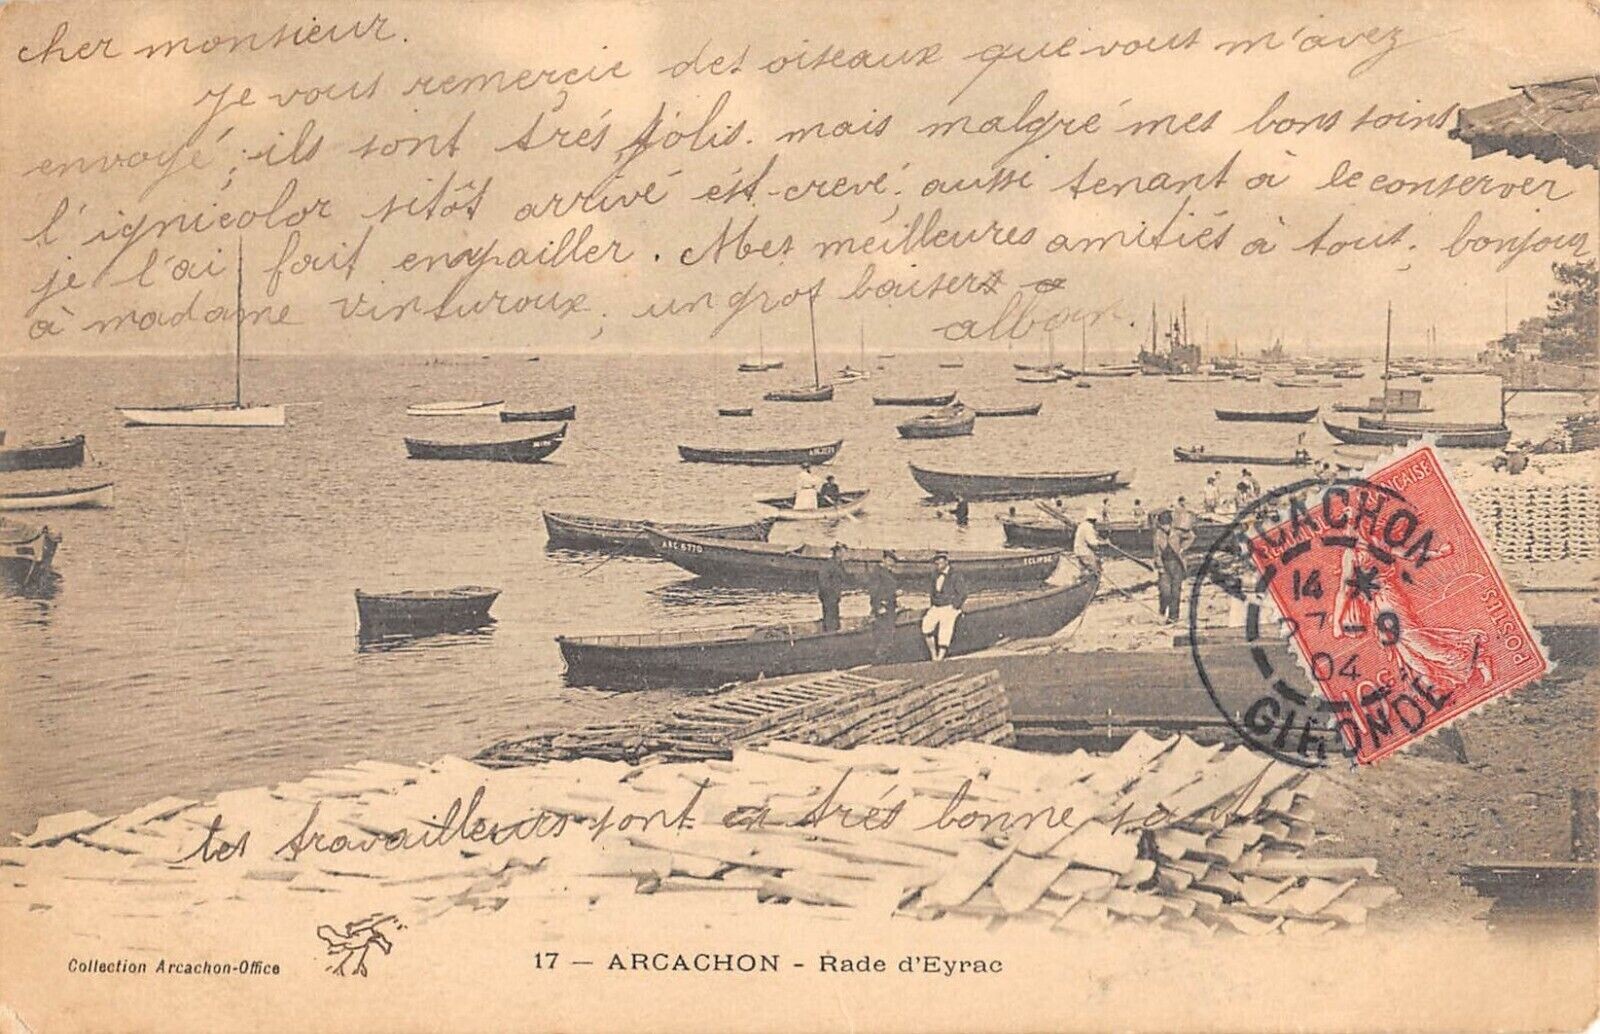 cher monsieur.
je vous remerçie des oiseaux que vous m'avez
envoyé; ils sont trés jolis. mais malgré mes bons soins
l'ignicolor sitôt arrivé est crevé. aussi tenant à le conserver
je l'ai fait empailler. Mes meilleures amitiés à tous; bonjour
à madame vinturoux; un gros baisers
alban.
ARC 6770
ECLIPSE
FRANÇAISE
POSTES
ARCACHON
14 *
27-9
04
GIRONDE
tes travailleurs sont en trés bonne santé
Collection Arcachon-Office
17 — ARCACHON - Rade d'Eyrac